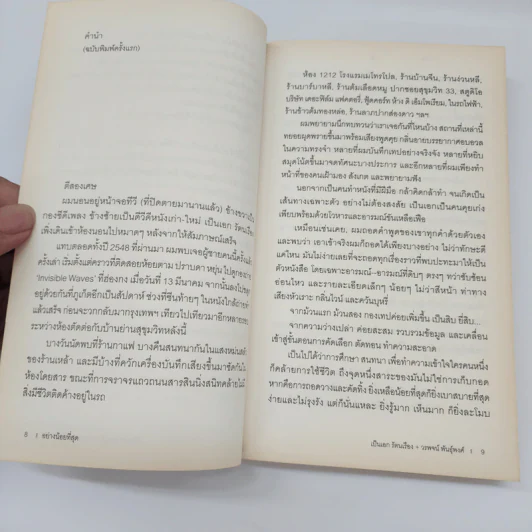 คำนำ
(ฉบับพิมพ์ครั้งแรก)
ตีสองเศษ
ผมนอนอยู่หน้าจอทีวี (ที่ปิดตายมานานแล้ว) ข้างขวาเป็น
กองซีดีเพลง ข้างซ้ายเป็นดีวีดีหนังเก่า-ใหม่ เป็นเอก รัตนเรือง
เพิ่งเดินเข้าห้องนอนไปหมาดๆ หลังจากให้สัมภาษณ์เสร็จ
แทบตลอดทั้งปี 2548 ที่ผ่านมา ผมพบเจอผู้ชายคนนี้ครั้งแล้ว
ครั้งเล่า เริ่มตั้งแต่คราวที่ติดสอยห้อยตาม ปราบดา หยุ่น ไปดูกองถ่าย
'Invisible Waves' ที่ฮ่องกง เมื่อวันที่ 13 มีนาคม จากนั้นลงไป
อยู่ด้วยกันที่ภูเก็ตอีกเป็นสัปดาห์
แล้วเสร็จ ก่อนจะวกกลับมากรุงเทพฯ เทียวไปเทียวมาอีกหลาย
ระหว่างห้องตัดต่อกับบ้านย่านสุขุมวิทหลังนี้
บางวันนัดพบที่ร้านกาแฟ บางคืนสนทนากันในแสงหม่นสลัว
ของร้านเหล้า และมีบ้างที่ควักเครื่องบันทึกเสียงขึ้นมาซัดกันใน
ห้องโดยสาร ขณะที่การจราจรแถวถนนสารสินนิ่งสนิทคล้ายไม่
สิ่งมีชีวิตติดค้างอยู่ในรถ
8 | อย่างน้อยที่สุด
ห้อง 1212 โรงแรมเมโทรโปล, ร้านบ้านจีน, ร้านง่วนหลี,
ร้านบาร์บาหลี, ร้านต้มเลือดหมู ปากซอยสุขุมวิท 33, สตูดิโอ
บริษัท เดอะฟิล์ม แฟคตอรี่, ฟู้ดคอร์ท ห้าง ดิ เอ็มโพเรียม, ในรถไฟฟ้า,
ร้านข้าวต้มทองหล่อ, ร้านลาบปากสองดาว ฯลฯ
ผมพยายามนึกทบทวนว่าเราเจอกันที่ไหนบ้าง สถานที่เหล่านี้
ทยอยผุดพรายขึ้นมาพร้อมเสียงพูดคุย กลิ่นอายบรรยากาศอบอวล
ในความทรงจำ หลายที่ผมบันทึกเทปอย่างจริงจัง หลายที่หยิบ
สมุดโน้ตขึ้นมาจดทัศนะบางประการ และอีกหลายที่ผมเพียงทำ
หน้าที่ของคนเฝ้ามอง สังเกต และพยายามฟัง
นอกจากเป็นคนทำหนังที่มีฝีมือ กล้าคิดกล้าทำ จนเกิดเป็น
เส้นทางเฉพาะตัว อย่างไม่ต้องสงสัย เป็นเอกเป็นคนคุยเก่ง
เพียบพร้อมด้วยโวหารและอารมณ์ขันเหลือเฟือ
เหมือนเช่นเคย, ผมถอดคำพูดของเขาทุกคำด้วยตัวเอง
และพบว่า เอาเข้าจริงผมก็ถอดได้เพียงบางอย่าง ไม่ว่าทักษะดี
แค่ไหน มันไม่ง่ายเลยที่จะถอดทุกเรื่องราวที่พบปะทะมาให้เป็น
ตัวหนังสือ โดยเฉพาะอารมณ์-อารมณ์ที่ดิบๆ ตรงๆ ทว่าซับซ้อน
อ่อนไหว และรายละเอียดเล็กๆ น้อยๆ ไม่ว่าสีหน้า ท่าทาง
เสียงหัวเราะ กลิ่นไวน์ และควันบุหรี่
จากม้วนแรก ม้วนสอง กองเทปค่อยเพิ่มขึ้น เป็นสิบ ยี่สิบ...
จากความว่างเปล่า ค่อยสะสม รวบรวมข้อมูล และเคลื่อน
เข้าสู่ขั้นตอนการคัดเลือก ตัดทอน ทำความสะอาด
เป็นไปได้ว่าการศึกษา สนทนา เพื่อทำความเข้าใจใครคนหนึ่ง
ก็คล้ายการใช้ชีวิต ถึงจุดหนึ่งสาระของมันไม่ใช่การเก็บกอด
หากคือการถอดวางและตัดทิ้ง ยิ่งเหลือน้อยที่สุดก็ยิ่งเบาสบายที่สุด
ง่ายและไม่รุงรัง แต่ก็นั่นแหละ ยิ่งรู้มาก เห็นมาก ก็ยิ่งละโมบ
เป็นเอก รัตนเรือง + วรพจน์ พันธุ์พงศ์ | 9